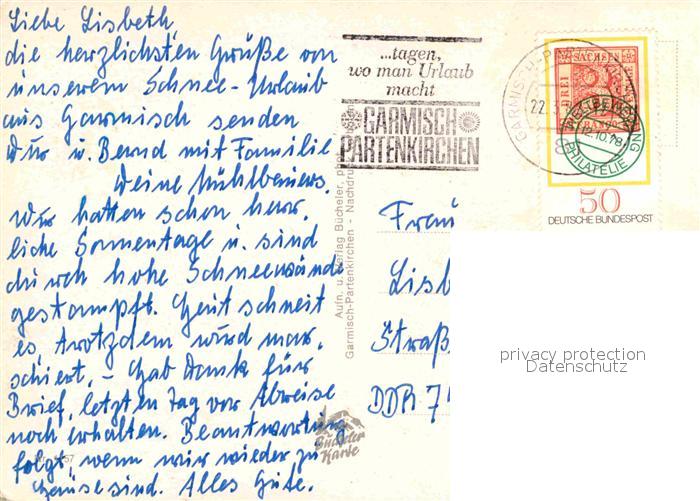 Liebe Lisbeth
die herzlichsten Grüße von
unserem Schnee-Urlaub
aus Garmisch senden
Dir u. Bernd mit Familie
Deine Mühlbeiers.
Wir hatten schon herr-
liche Sonnentage u. sind
durch hohe Schneewände
gestampft. Heut schneit
es, trotzdem wird mar-
schiert, - Hab Dank für
Brief, letzten Tag vor Abreise
noch erhalten. Beantwortung
folgt, wenn wir wieder zu
Hause sind. Alles Gute.
...tagen,
wo man Urlaub
macht
GARMISCH
PARTENKIRCHEN
GARMISCH-PART
22.3
SACHSEN
DREI
WELTBEWEGUNG
PHILATELIE
50
DEUTSCHE BUNDESPOST
Aufn. u. Verlag Bücheler,
Garmisch-Partenkirchen - Nachdru
Frau
Lisb
Straß
DDR 7
Bücheler
Karte
privacy protection
Datenschutz